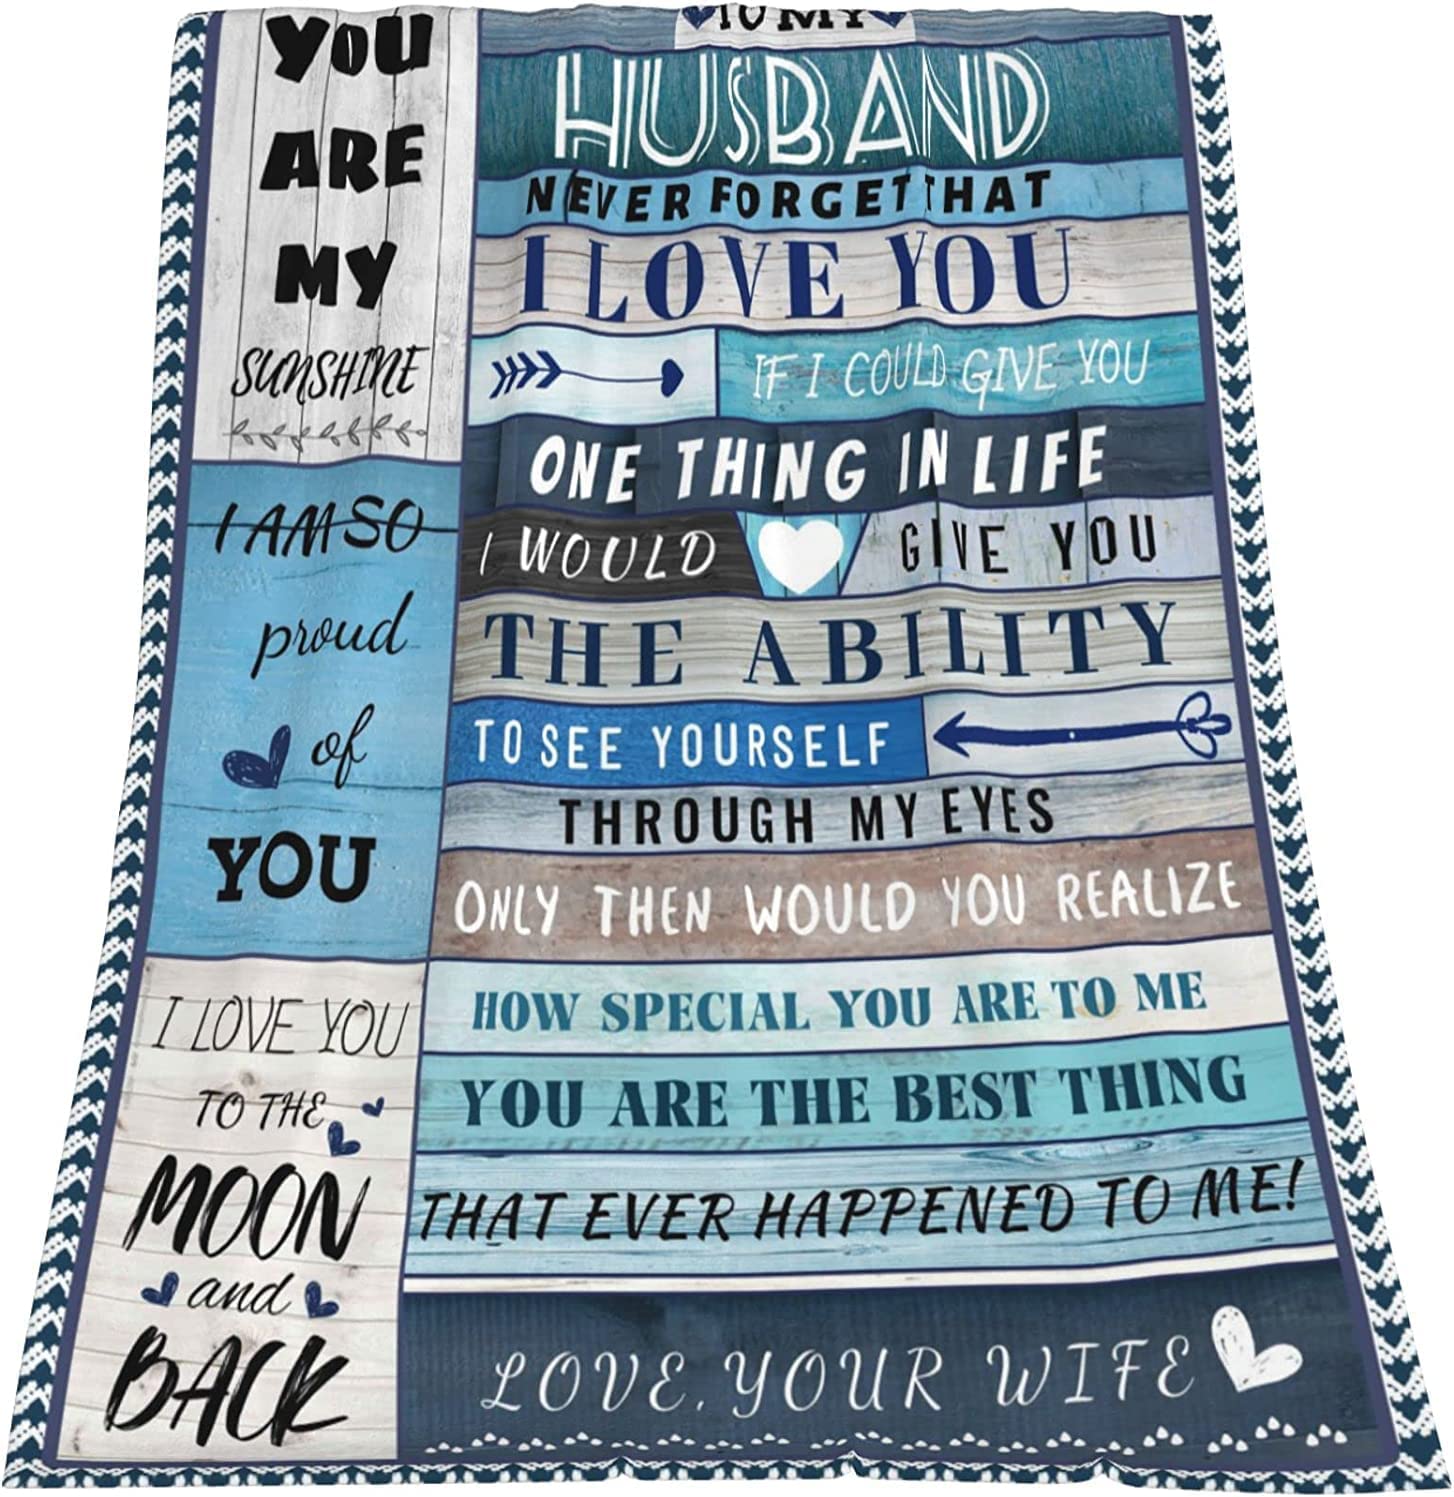 YOU
ARE
MY
SUNSHINE
I AM SO
proud
of
YOU
I LOVE YOU
TO THE
MOON
and
BACK
TO MY
HUSBAND
NEVER FORGET THAT
I LOVE YOU
IF I COULD GIVE YOU
ONE THING IN LIFE
I WOULD GIVE YOU
THE ABILITY
TO SEE YOURSELF
THROUGH MY EYES
ONLY THEN WOULD YOU REALIZE
HOW SPECIAL YOU ARE TO ME
YOU ARE THE BEST THING
THAT EVER HAPPENED TO ME!
LOVE, YOUR WIFE